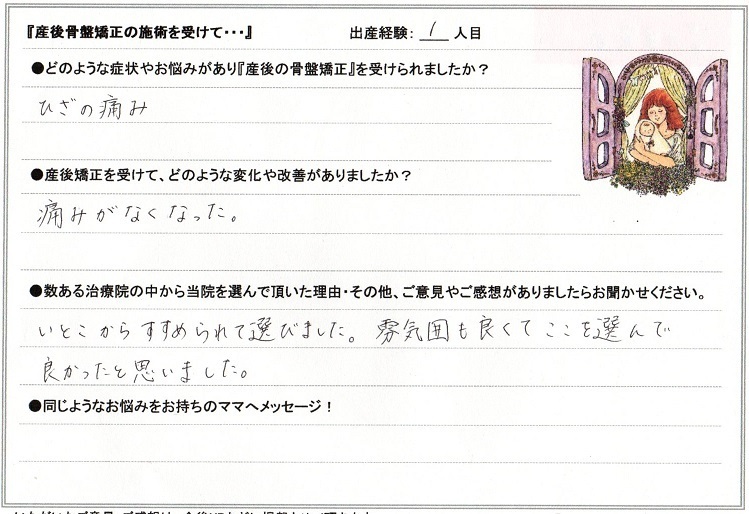 『産後骨盤矯正の施術を受けて・・・』 出産経験： 1 人目
●どのような症状やお悩みがあり『産後の骨盤矯正』を受けられましたか？
ひざの痛み
●産後矯正を受けて、どのような変化や改善がありましたか？
痛みがなくなった。
●数ある治療院の中から当院を選んで頂いた理由・その他、ご意見やご感想がありましたらお聞かせください。
いとこからすすめられて選びました。雰気囲も良くてここを選んで
良かったと思いました。
●同じようなお悩みをお持ちのママへメッセージ！